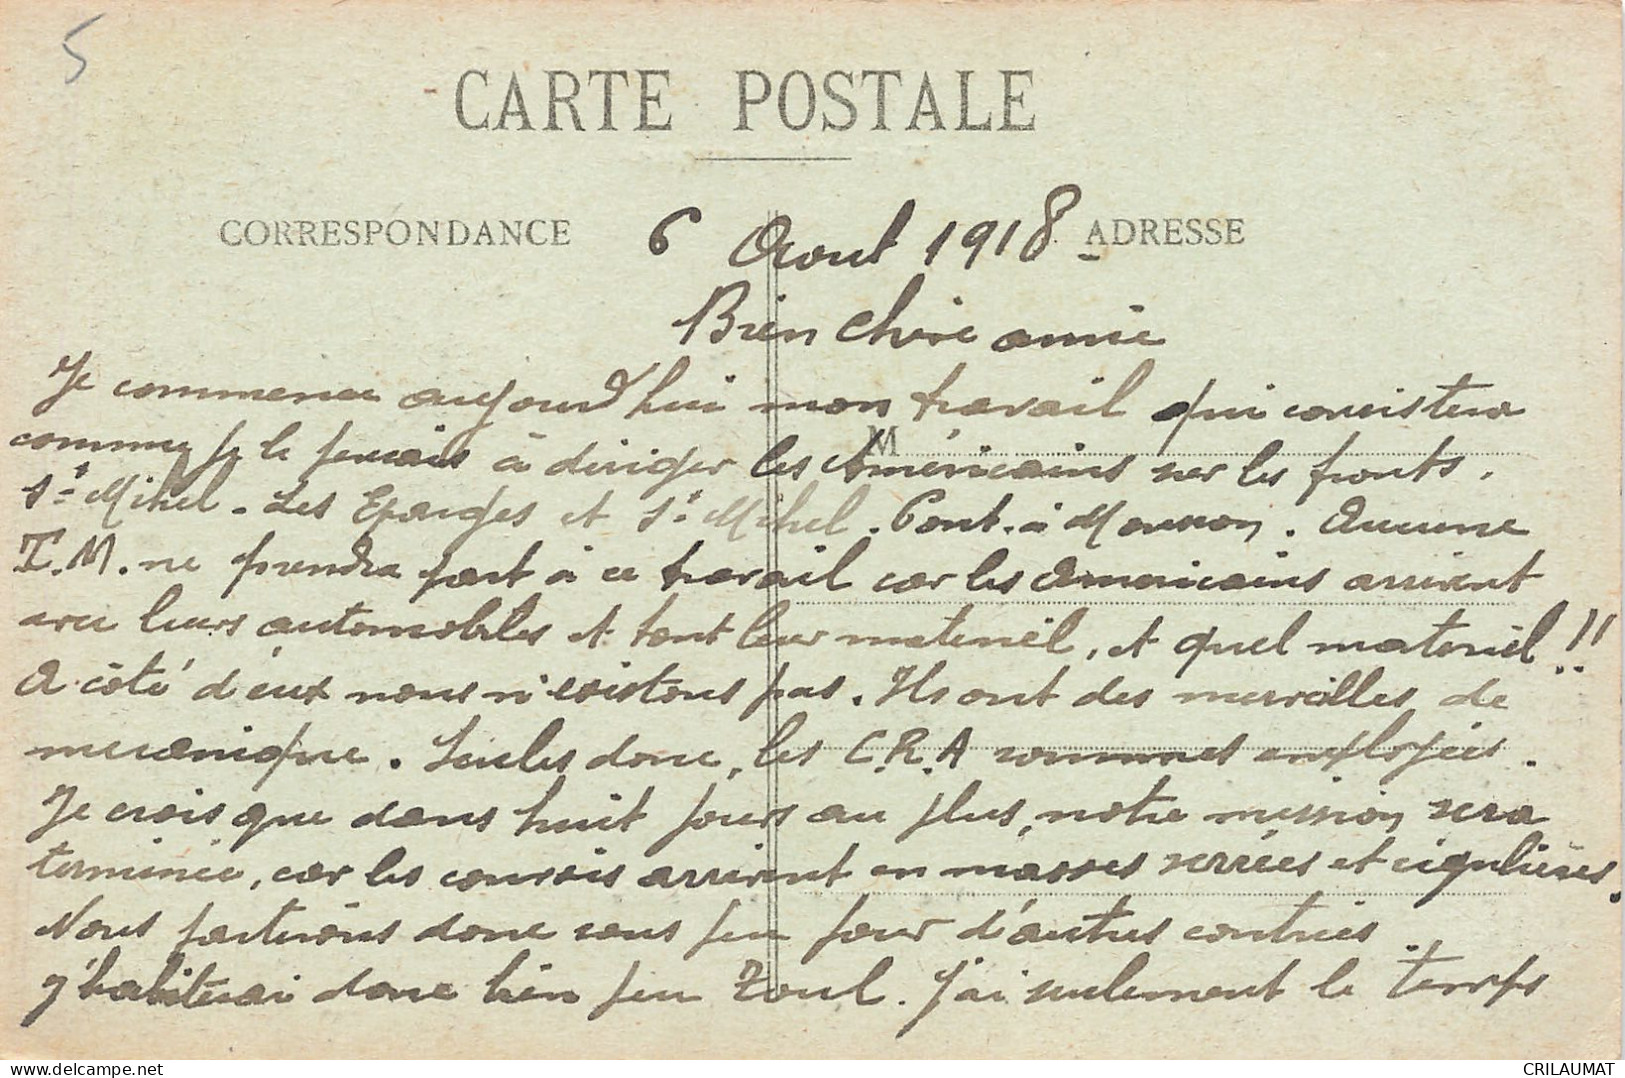 5
CARTE POSTALE
CORRESPONDANCE
ADRESSE
6 Aout 1918
Bien chère amie
Je commence aujourd'hui mon travail qui consistera
comme je le pensais à diriger les Américains sur les fronts.
St Mihel. Les Eparges et St Mihel. Pont-à Mousson. Aucune
T.M. ne prendra part à ce travail car les Americains arrivent
avec leurs automobiles et tout leur materiel, et quel materiel!!
A côté d'eux nous n'existons pas. Ils ont des merveilles de
mecanique. Seules donc, les C.R.A sommes employées.
Je crois que dans huit jours au plus, notre mission sera
terminée, car les convois arrivent en masses serrées et régulières.
Nous partirons donc sous peu pour d'autres contrées.
J'habiterai donc bien peu Toul. J'ai seulement le temps
M
delcampe.net
CRILAUMAT